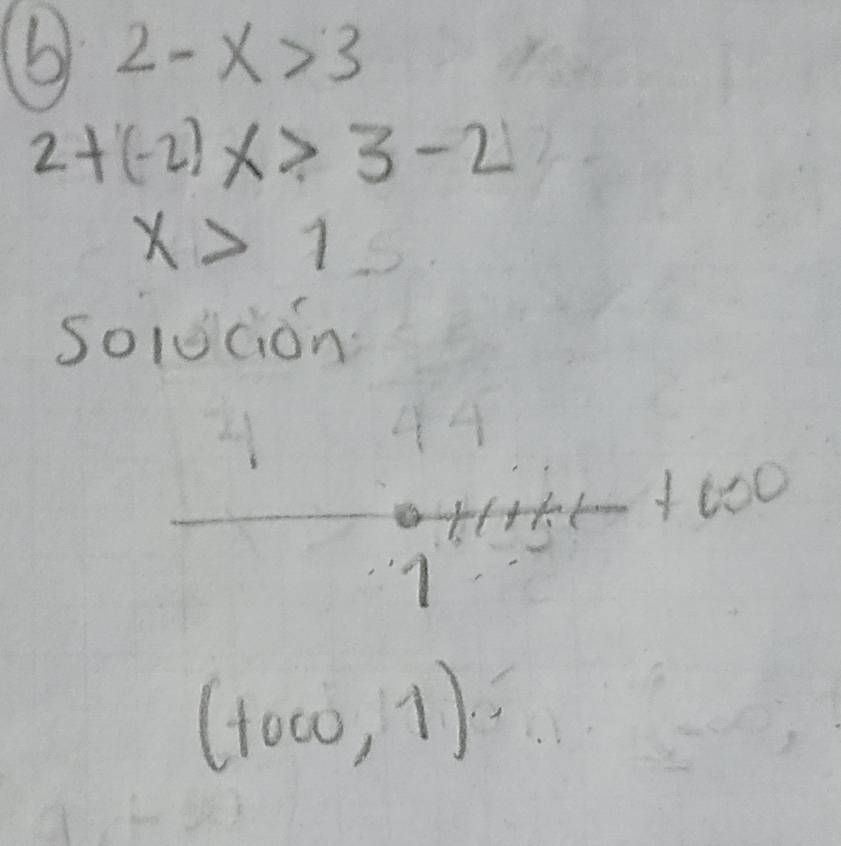 b 2-x>3
2+(-2) x > 3-2
x > 1
Solución
+∞
1
(+∞, 1)